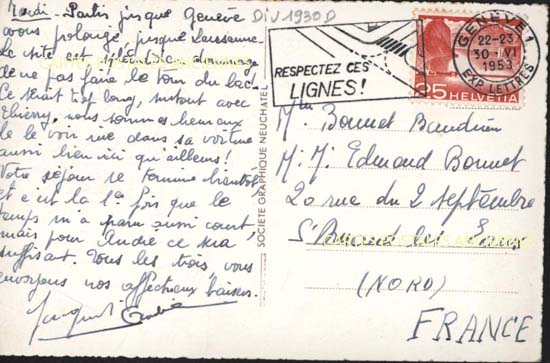 Mardi - Partis jusque Genève
avons prolongé jusque Lausanne.
Le site est splendide, dommage
de ne pas faire le tour du lac!
Le trait est long, surtout avec
Thierry, nous sommes heureux
de le voir rire dans sa voiture
aussi bien ici qu'ailleurs!
Votre séjour se termine bientôt
et c'est la 1e fois que le
temps m'a paru aussi court,
mais pour André ce sera
suffisant. Tous les trois vous
envoyons nos affectueux baisers.
André
DIV 1930 D
SOCIETE GRAPHIQUE NEUCHATEL
RESPECTEZ CES
LIGNES!
GENÈVE 1
22-23
30-VI
1953
EXP. LETTRES
25 HELVETIA
Mme Bonnet
M. M. Edmond Bonnet
20 rue du 2 septembre
St Amand les Eaux
(NORD)
FRANCE